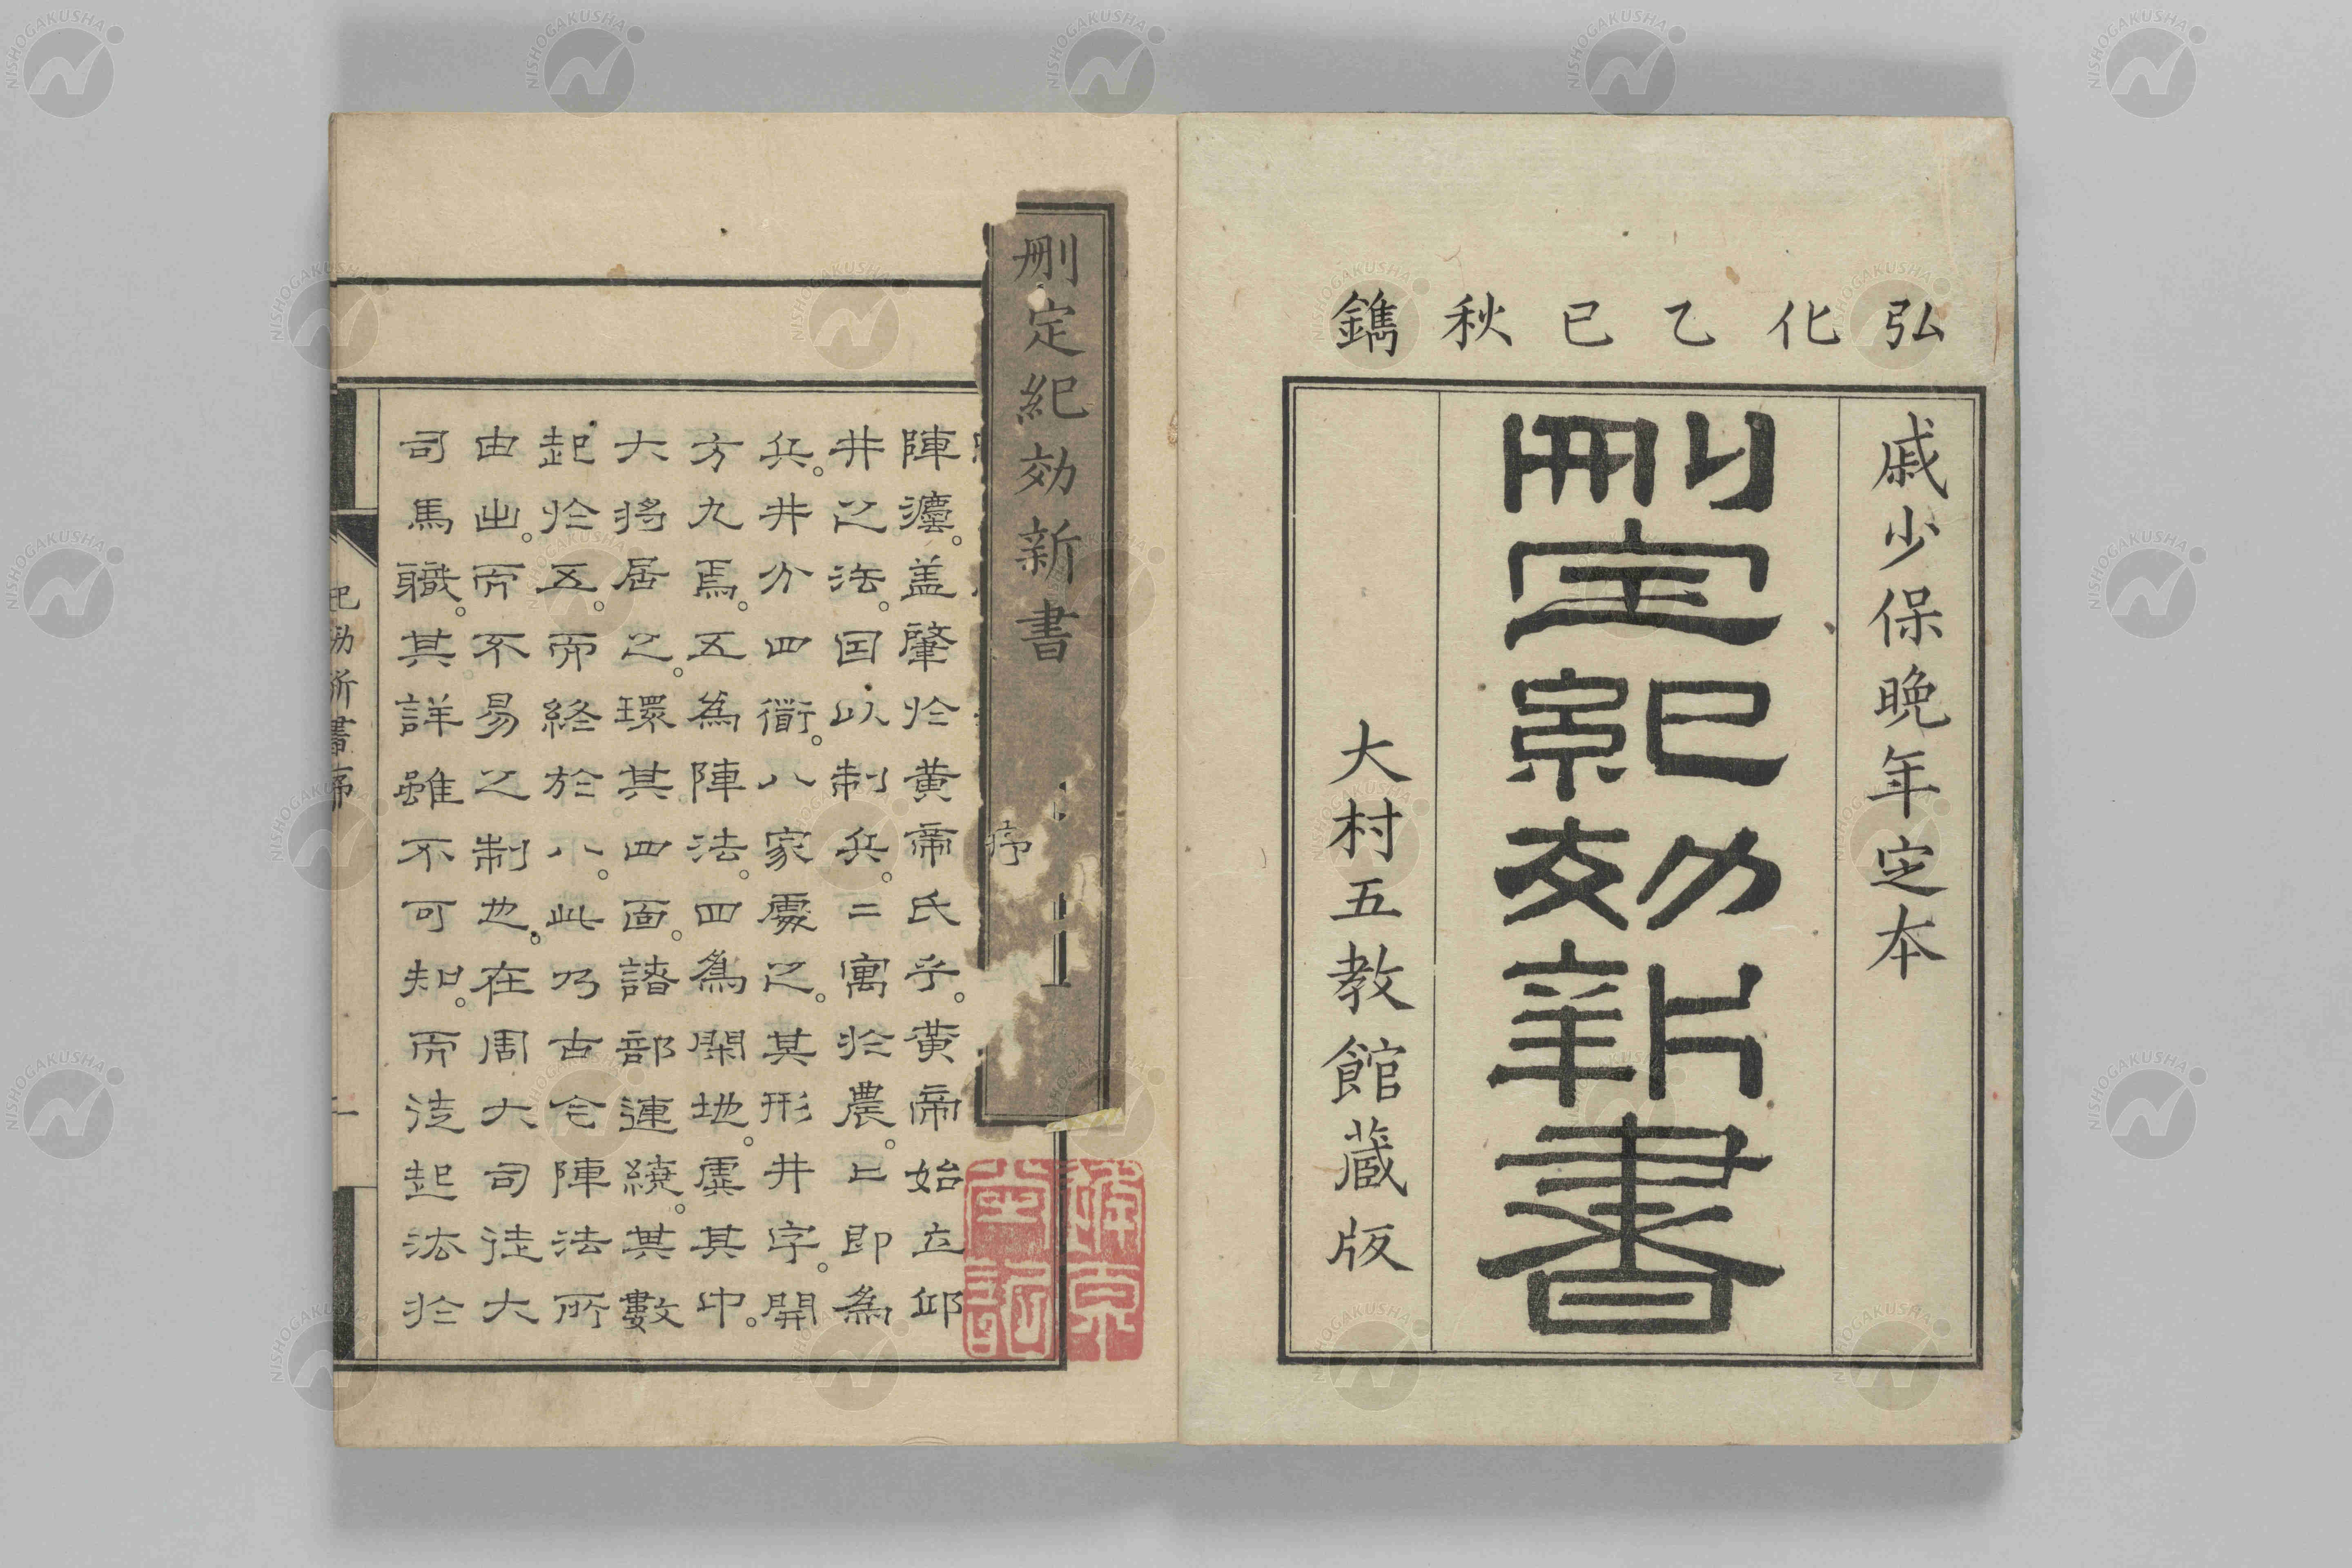 弘化乙巳秋鐫
戚少保晚年定本
刪定紀効新書
大村五教館蔵版
刪定紀効新書
序
陣灋。盖肇於黄帝氏乎。黄帝始立邱
井之法。因以制兵。二寓於農。上即為
兵。井分四衢。八家處之。其形井字。開
方九焉。五為陣法。四為閑地。虛其中。
大将居之。環其四面。諸部連繞。其數
起於五。而終於八。此乃古今陣法所
由出。而不易之制也。在周大司徒大
司馬職。其詳雖不可知。而徒起法於
紀効新書序
NISHOGAKUSHA